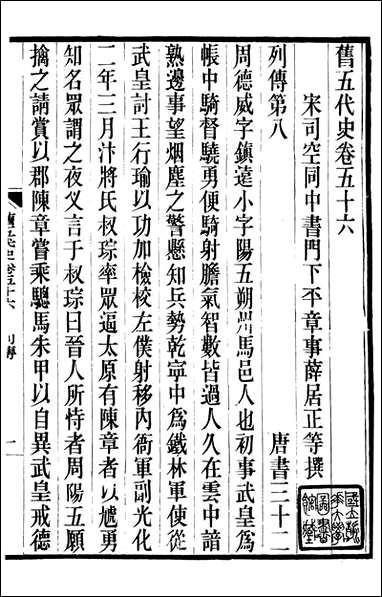 舊五代史卷五十六
宋司空同中書門下平章事薛居正等撰
列傳第八　唐書三十二
周德威字鎮遠小字陽五朔州馬邑人也初事武皇爲
帳中騎督驍勇便騎射膽氣智數皆過人久在雲中諳
熟邊事望烟塵之警懸知兵勢乾寧中爲鐵林軍使從
武皇討王行瑜以功加檢校左僕射移內衙軍副光化
二年三月汴將氏叔琮率眾逼太原有陳章者以虓勇
知名眾謂之夜义言于叔琮曰晉人所恃者周陽五願
擒之請賞以郡陳章嘗乘驄馬朱甲以自異武皇戒德